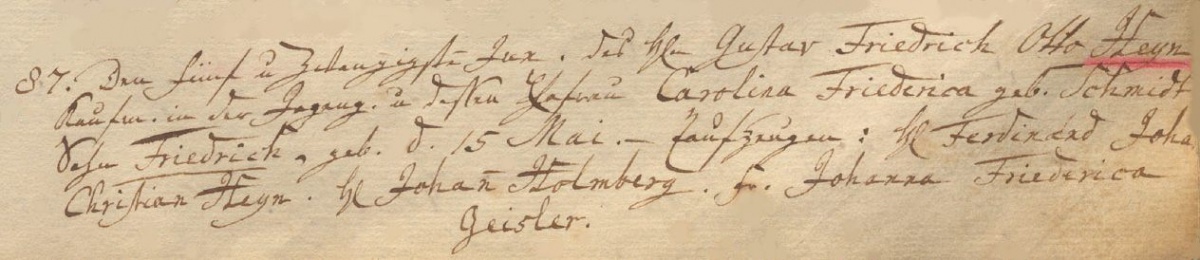 87. Den fünf u Zwanzigste Jun. des Hn Gustav Friedrich Otto Heyn
Kaufm. in der Jägerg. u dessen Ehefrau Carolina Friederica geb. Schmidt
Sohn Friedrich, geb. d. 15 Mai. – Taufzeugen: H Ferdinand Joha
Christian Heyn. H Johañ Holmberg. Fr. Johanna Friederica
Geisler.